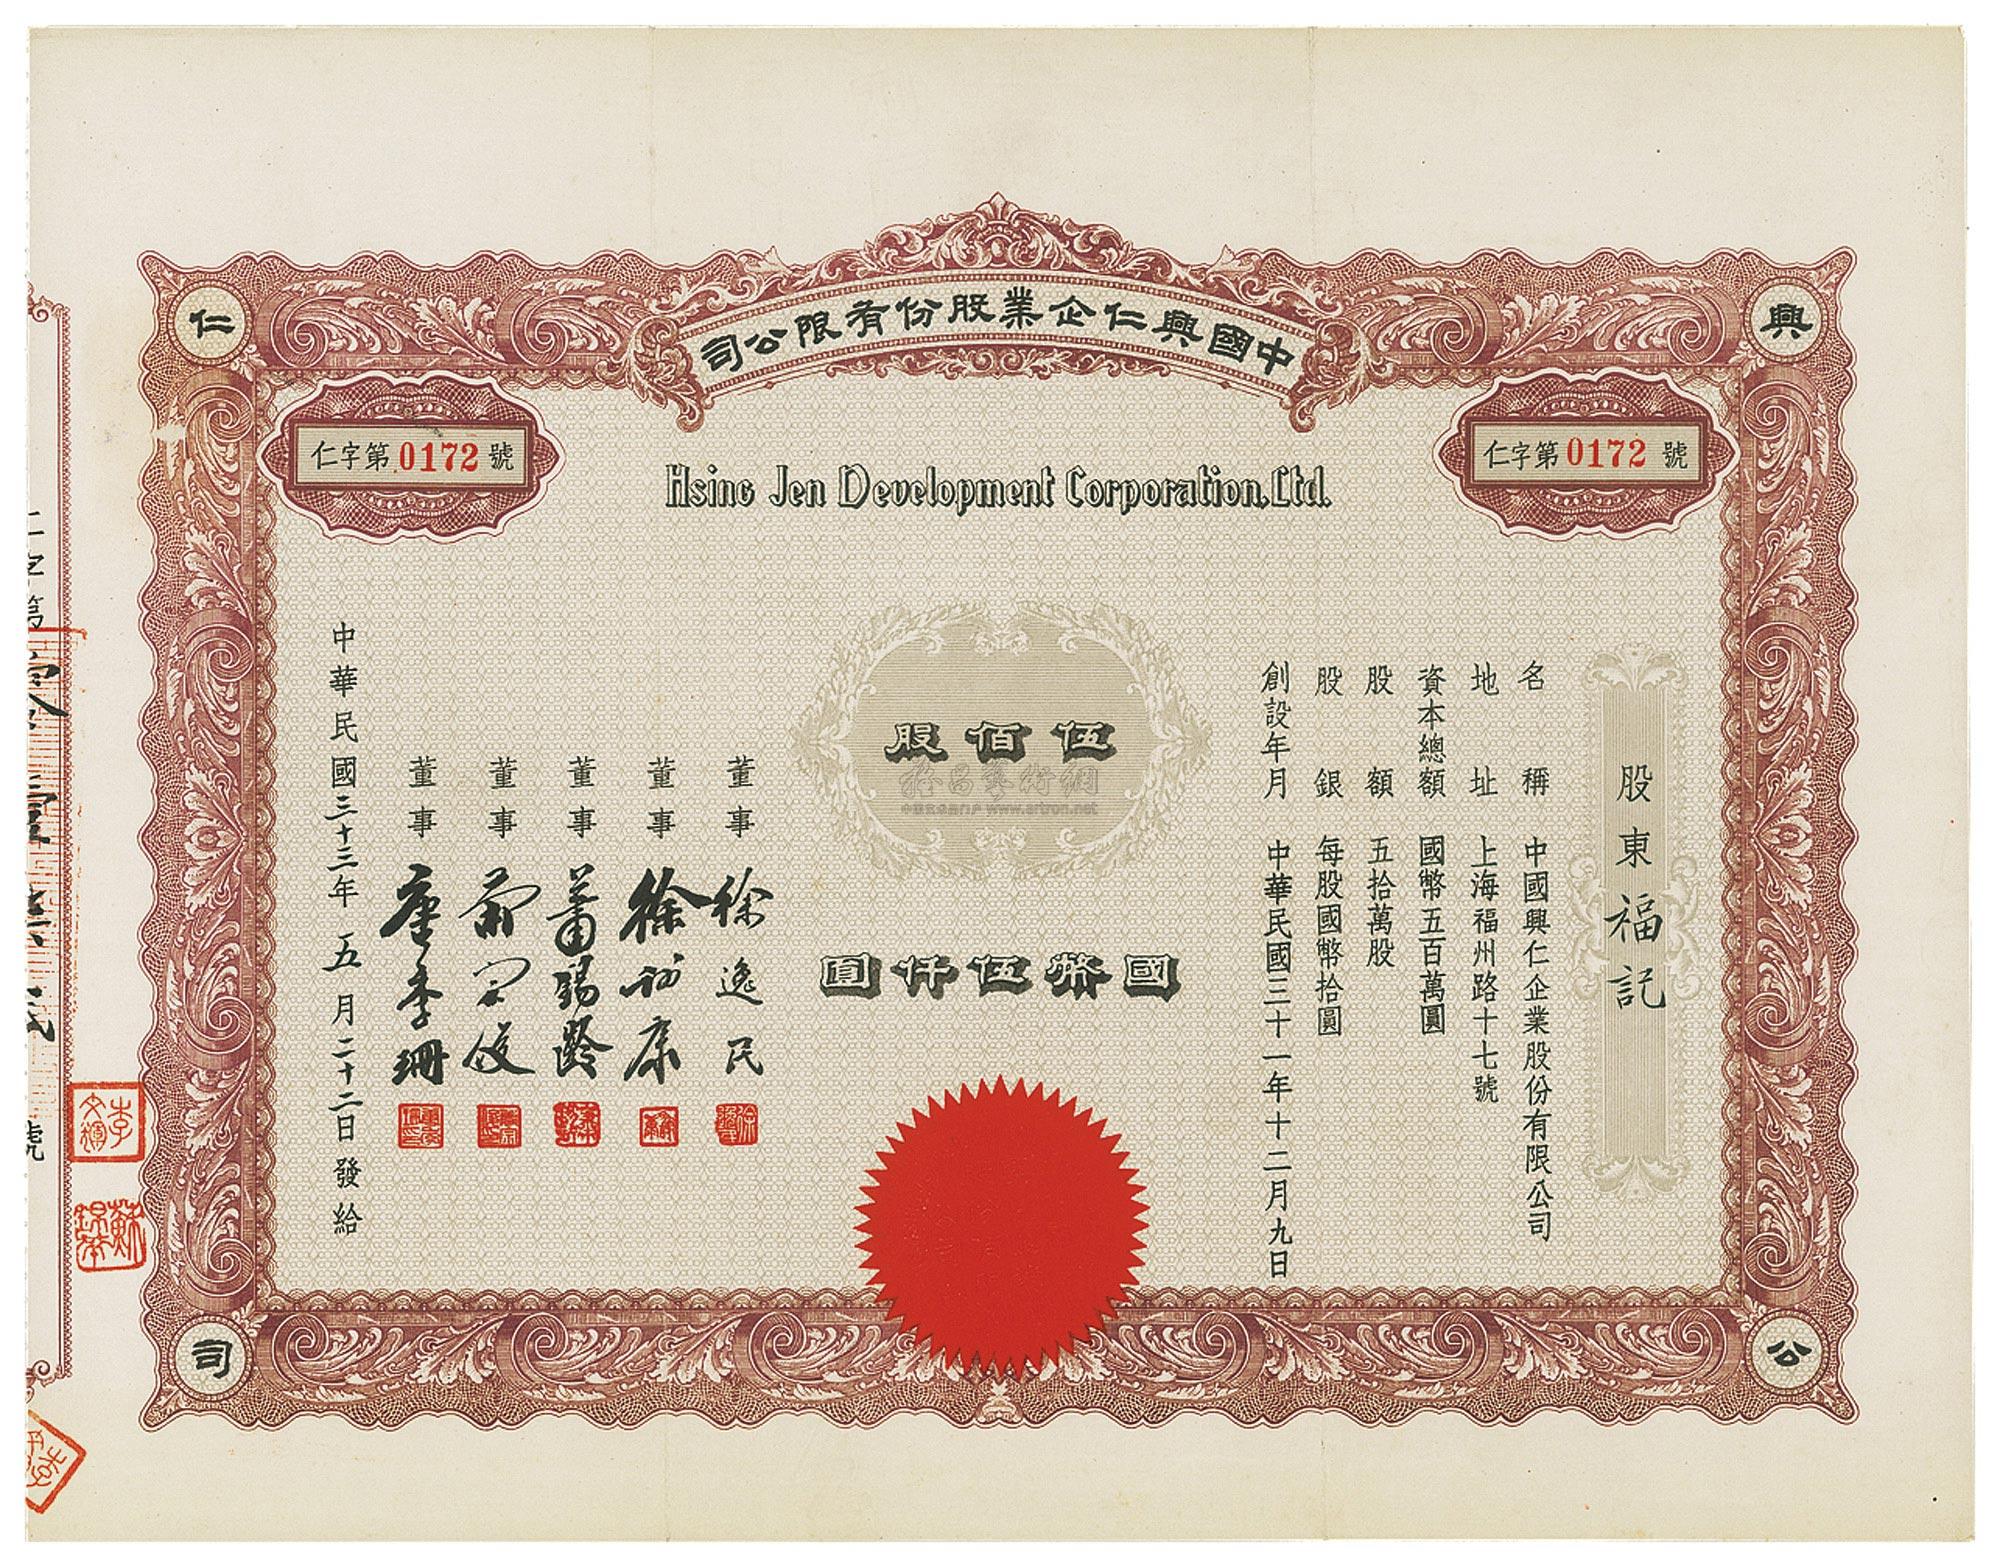 中國興仁企業股份有限公司
興
仁
公
司
仁字第0172號
仁字第0172號
Hsing Jen Development Corporation,Ltd.
股東福記
名稱 中國興仁企業股份有限公司
地址 上海福州路十七號
資本總額 國幣五百萬圓
股額 五拾萬股
股銀 每股國幣拾圓
創設年月 中華民國三十一年十二月九日
伍佰股
國幣伍仟圓
董事 徐逸民
董事
董事 蕭錫齡
董事
董事 李珊
中華民國三十三年五月二十二日發給
www.artron.net